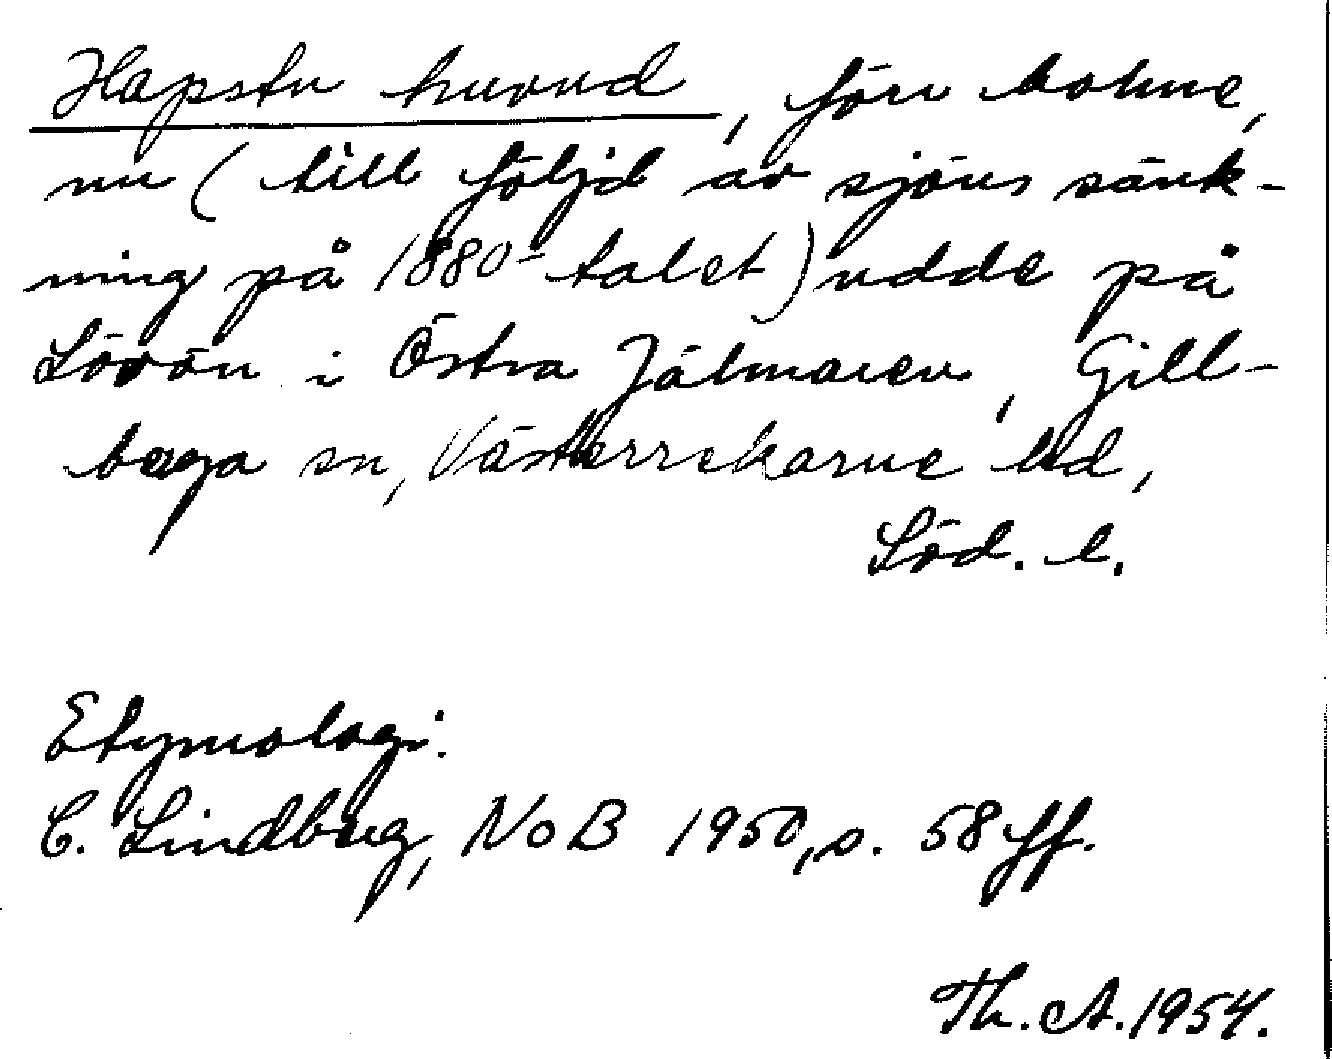 Hapstu huvud, förr holme,
nu (till följd av sjöns sänk-
ning på 1880-talet) udde på
Lövön i Östra Jälmaren, Gill-
berga sn, Västerrekarne hd,
Söd. l.
Etymologi:
C. Lindberg, NoB 1950, s. 58 ff.
Th. A. 1954.